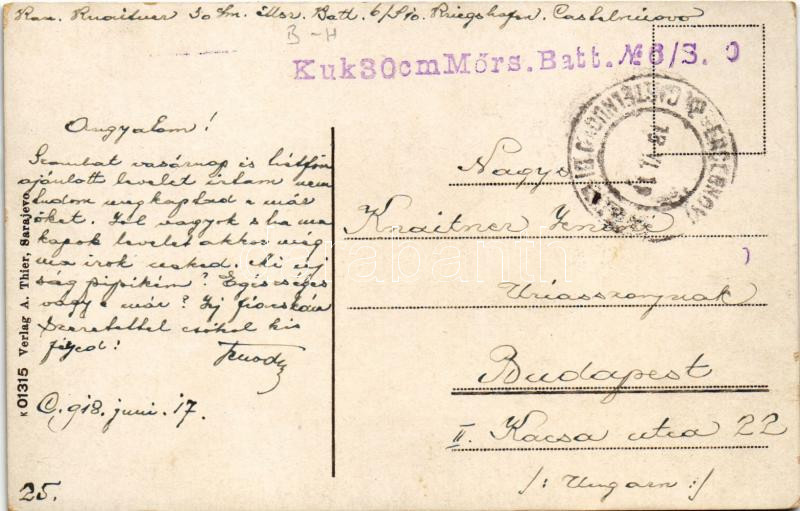 Kan. Knaitner 30 cm. Msr. Batt. 6/S. 10 Kriegshafen. Castelnuovo
B-H
Kukₓ30cmMörs.Batt.№6/S. 0
Angyalom!
Szombat vasárnap is hétfőn
ajánlott levelet irtam nem
tudom megkaptad e már
őket. Jól vagyok s ha ma
kapok levelet akkor még
ma irok neked. Mi uj
ság pipikém? Egészséges
vagy e már? Irj fiacskám
Szeretettel csókol kis
férjed!
Jenőd
C. 918. juni. 17.
25.
K 01315 Verlag A. Thier, Sarajevo.
CASTELNUOVO
ERCEGNOVI
18 VI
Nagys
Knaitner Jenőné
Uriasszonynak
Budapest
II. Kacsa utca 22
/: Ungarn :/
darabanth